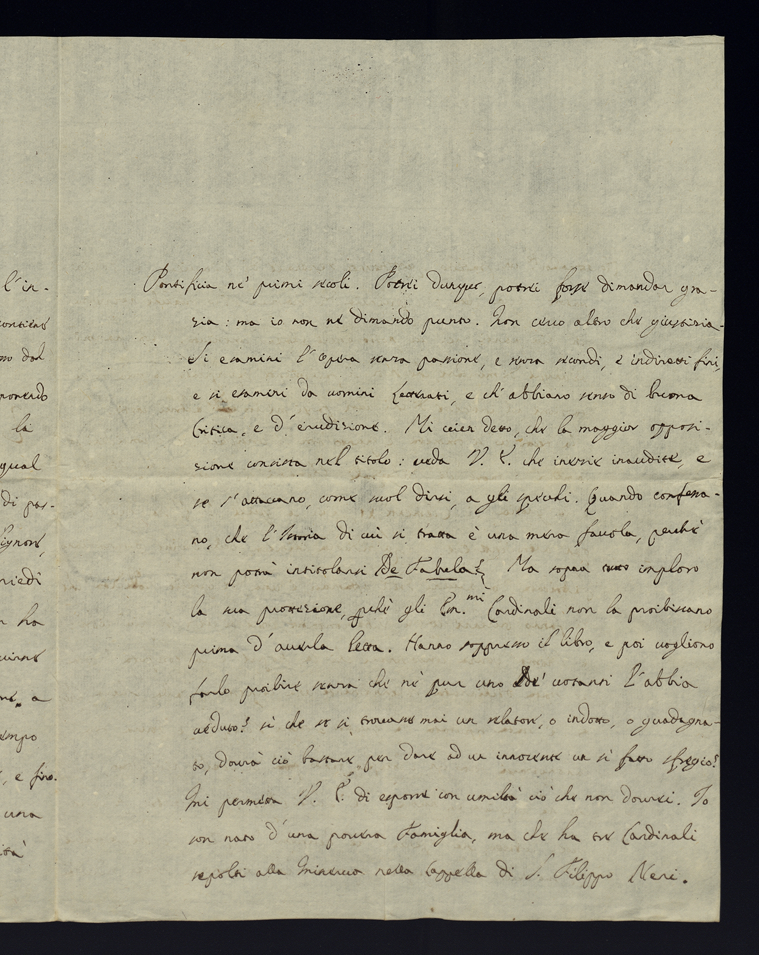 l'in-
la
qual
di pas-
Signore,
piedi
ha
a
, e fino.
una
Pontificia ne' primi secoli. Potrei dunque, potrei forse dimandar gra-
zia: ma io non ne dimando punto. Non cerco altro che giustizia.
Si esamini l'Opera senza passione, e senza secondi, e indiretti fini,
e si esamini da uomini Letterati, e ch'abbiano senso di buona
Critica, e d'erudizione. Mi vien detto, che la maggior opposi-
zione consista nel titolo: veda V. E. che inezie inaudite, e
se s'attaccano, come suol dirsi, a gli specchi. Quando confessa-
no, che l'Istoria di cui si tratta è una mera favola, perchè
non potrà intitolarsi De Fabula? Ma sopra tutto imploro
la sua protezione, pchè gli Em.mi Cardinali non la proibiscano
prima d'averla letta. Hanno soppresso il libro, e poi vogliono
farlo proibire senza che nè pur uno de' votanti l'abbia
veduto? sì che se si trovasse mai un relatore, o indotto, o guadagna-
to, dovrà ciò bastare per dare ad un innocente un sì fatto sfregio?
Mi permetta V. E. di esporre con umiltà ciò che non dovrei. Io
son nato d'una povera Famiglia, ma che ha tre Cardinali
sepolti alla Minerva nella Cappella di S. Filippo Neri.